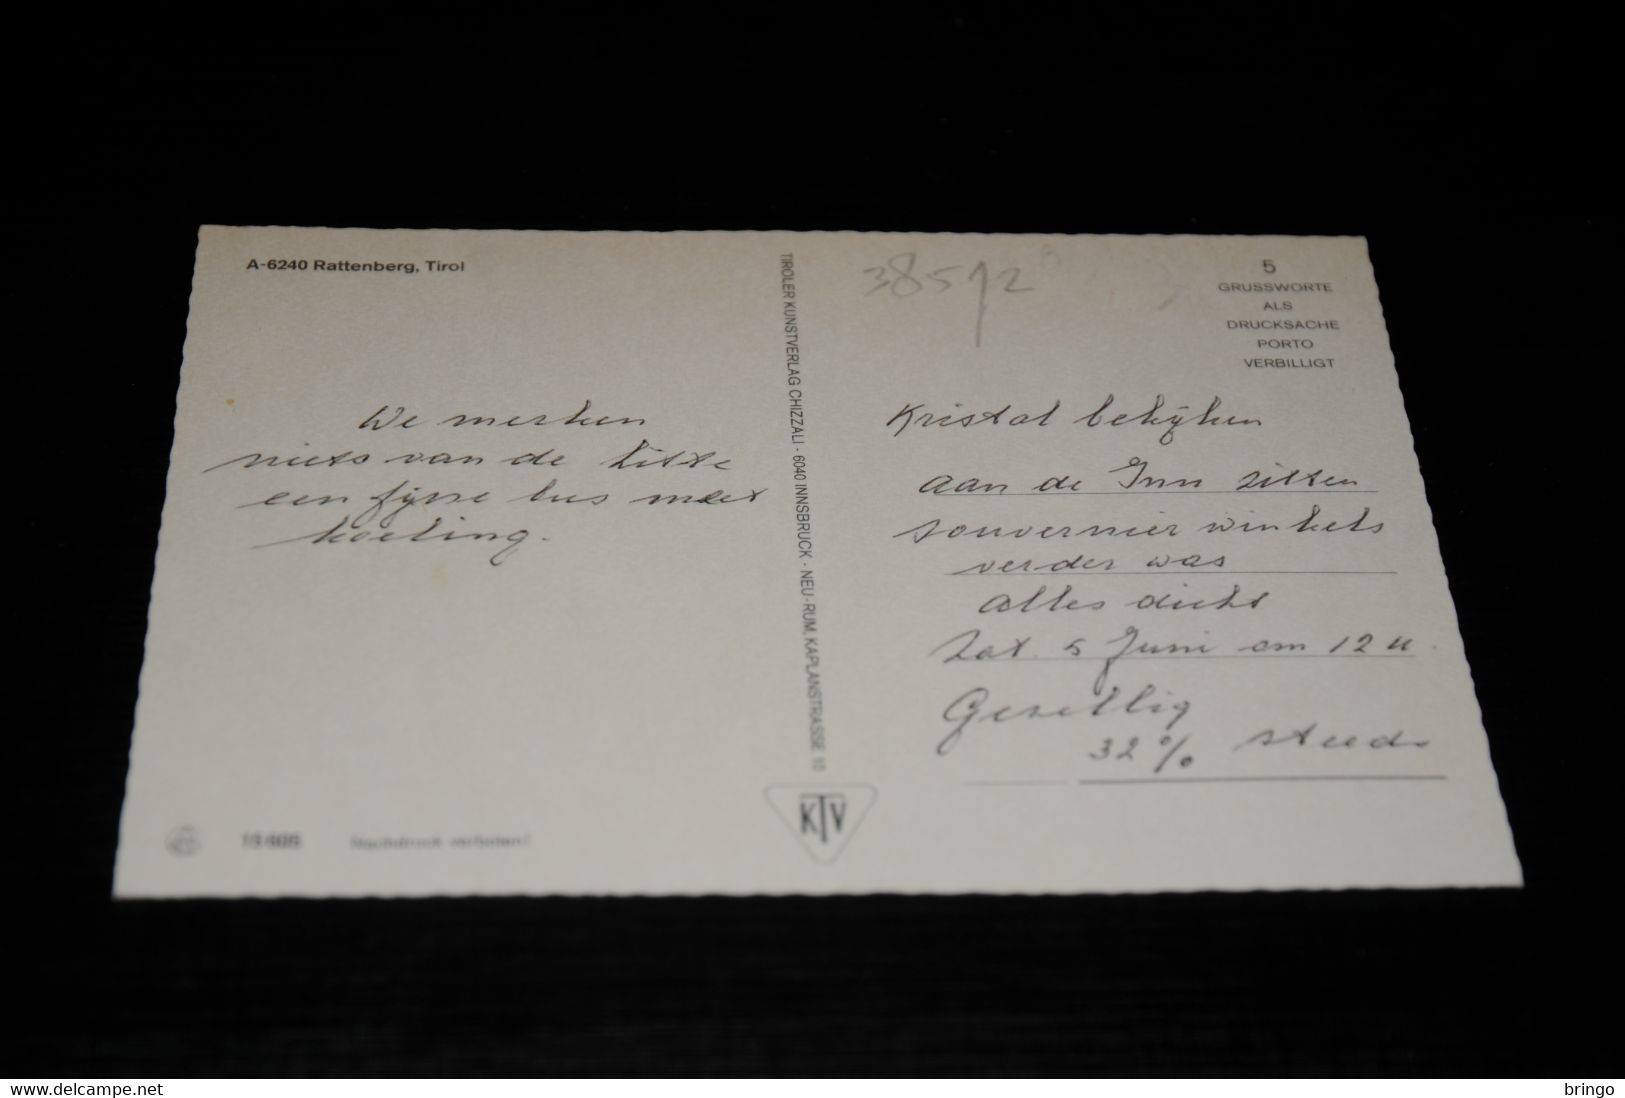 A-6240 Rattenberg, Tirol
We merken
niets van de hitte
een fijne bus met
koeling.
Nachdruck verboten!
TIROLER KUNSTVERLAG CHIZZALI · 6040 INNSBRUCK · NEU-RUM, KAPLANSTRASSE 10
KTV
38512
5
GRUSSWORTE
ALS
DRUCKSACHE
PORTO
VERBILLIGT
Kristal bekijken
aan de Inn zitten
souvernier winkels
verder was
alles dicht
Zat. 5 Juni om 12 u.
Gezellig
32% steeds
www.delcampe.net
bringo